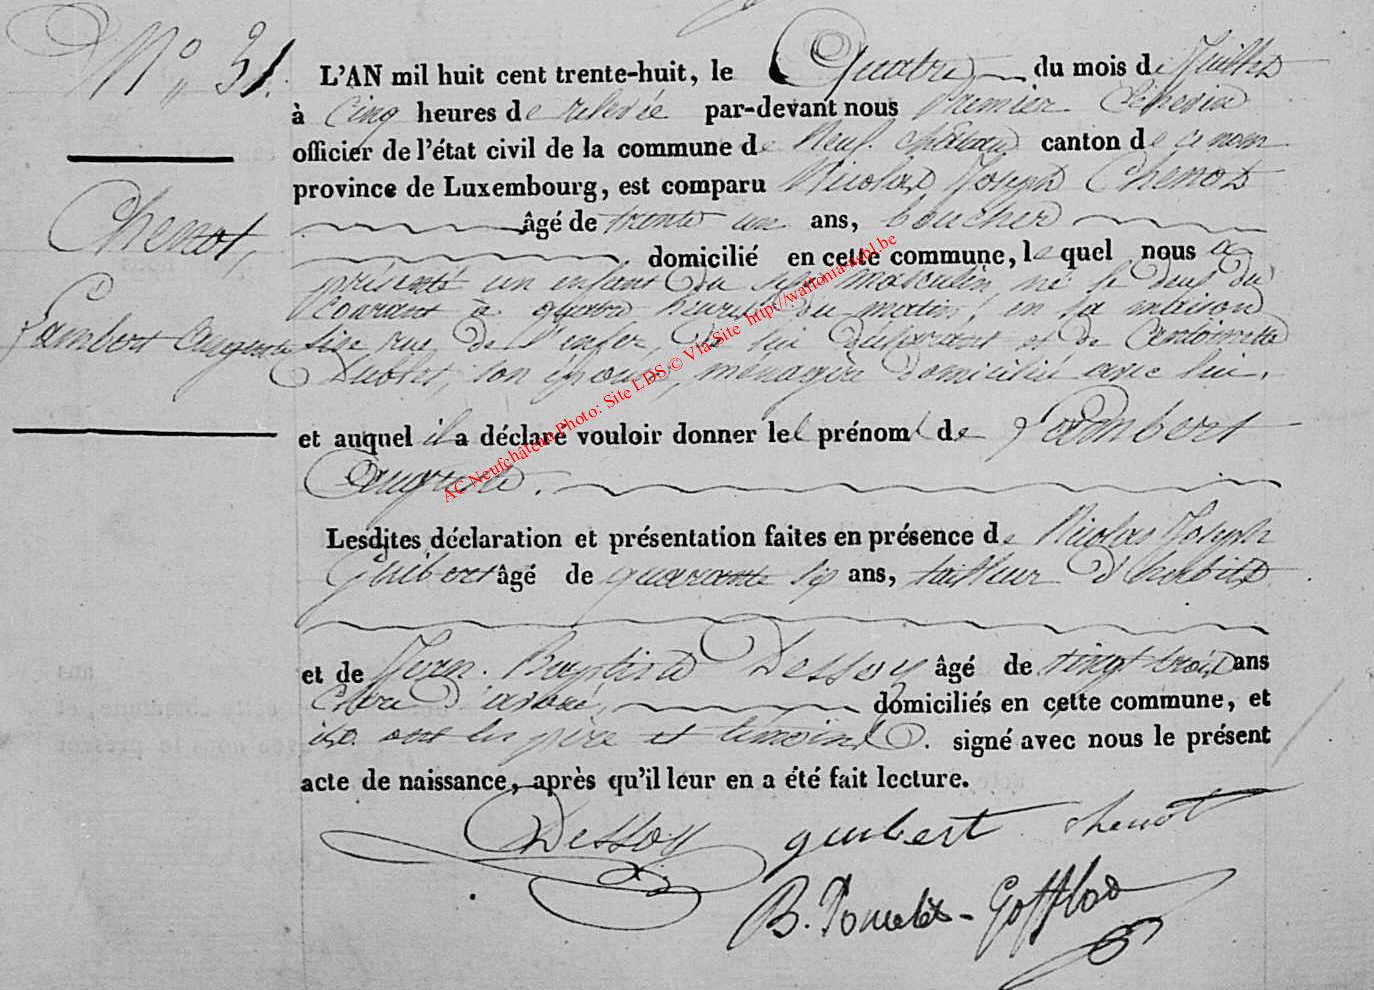 N° 31.
L'AN mil huit cent trente-huit, le Quatre du mois de Juillet
à cinq heures de relevée par-devant nous Premier Echevin
officier de l'état civil de la commune de Neufchâteau canton de ce nom
province de Luxembourg, est comparu Nicolas Joseph Chenot
âgé de trente un ans, boucher
domicilié en cette commune, lequel nous a
présenté un enfant du sexe masculin né le deux du
courant à quatre heures du matin, en sa maison
sise rue de l'enfer, de lui déclarant et de Antoinette
son épouse, ménagère domiciliée avec lui.
et auquel il a déclaré vouloir donner les prénoms de Lambert
Auguste.
Lesdites déclaration et présentation faites en présence de Nicolas Joseph
Guibert âgé de quarante six ans, tailleur d'habits
et de Jean Baptiste Dessoy âgé de vingt trois ans
Clerc d'avoué, domiciliés en cette commune, et
ont les père et témoins signé avec nous le présent
acte de naissance, après qu'il leur en a été fait lecture.
Chenot,
Lambert Auguste
Dessoy guibert chenot
B.
AC Neufchâteau Photo: Site LDS © Via Site http://wallonia-asbl.be